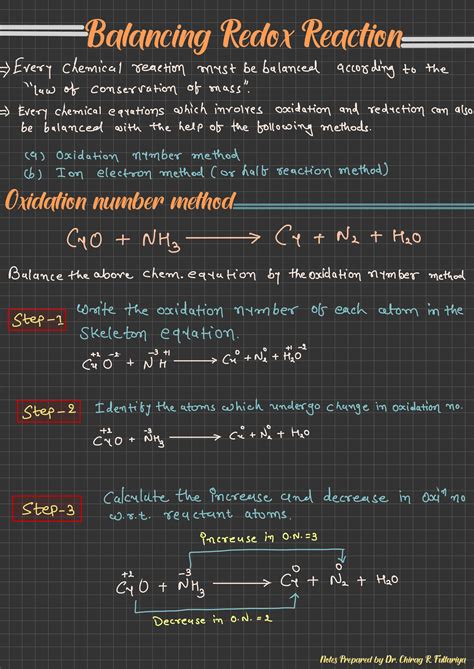 Balancing Redox Reaction
⇒ Every chemical reaction must be balanced according to the
"law of conservation of mass".
⇒ Every chemical equations which involves oxidation and reduction can also
be balanced with the help of the following methods.
(a) Oxidation number method
(b) Ion electron method (or half reaction method)
Oxidation number method
CuO + NH₃ ⟶ Cu + N₂ + H₂O
Balance the above chem. equation by the oxidation number method
Step-1
Write the oxidation number of each atom in the
skeleton equation.
+2 -2 -3 +1 0 0 +1 -2
Cu O + N H ⟶ Cu + N₂ + H₂O
Step-2
Identify the atoms which undergo change in oxidation no.
+2 -3 0 0
CuO + NH₃ ⟶ Cu + N₂ + H₂O
Step-3
Calculate the increase and decrease in oxiⁿ no
w.r.t. reactant atoms.
Increase in O.N. = 3
+2 -3 0 0
CuO + NH₃ ⟶ Cu + N₂ + H₂O
Decrease in O.N. = 2
Notes Prepared by Dr. Chirag R. Fultariya